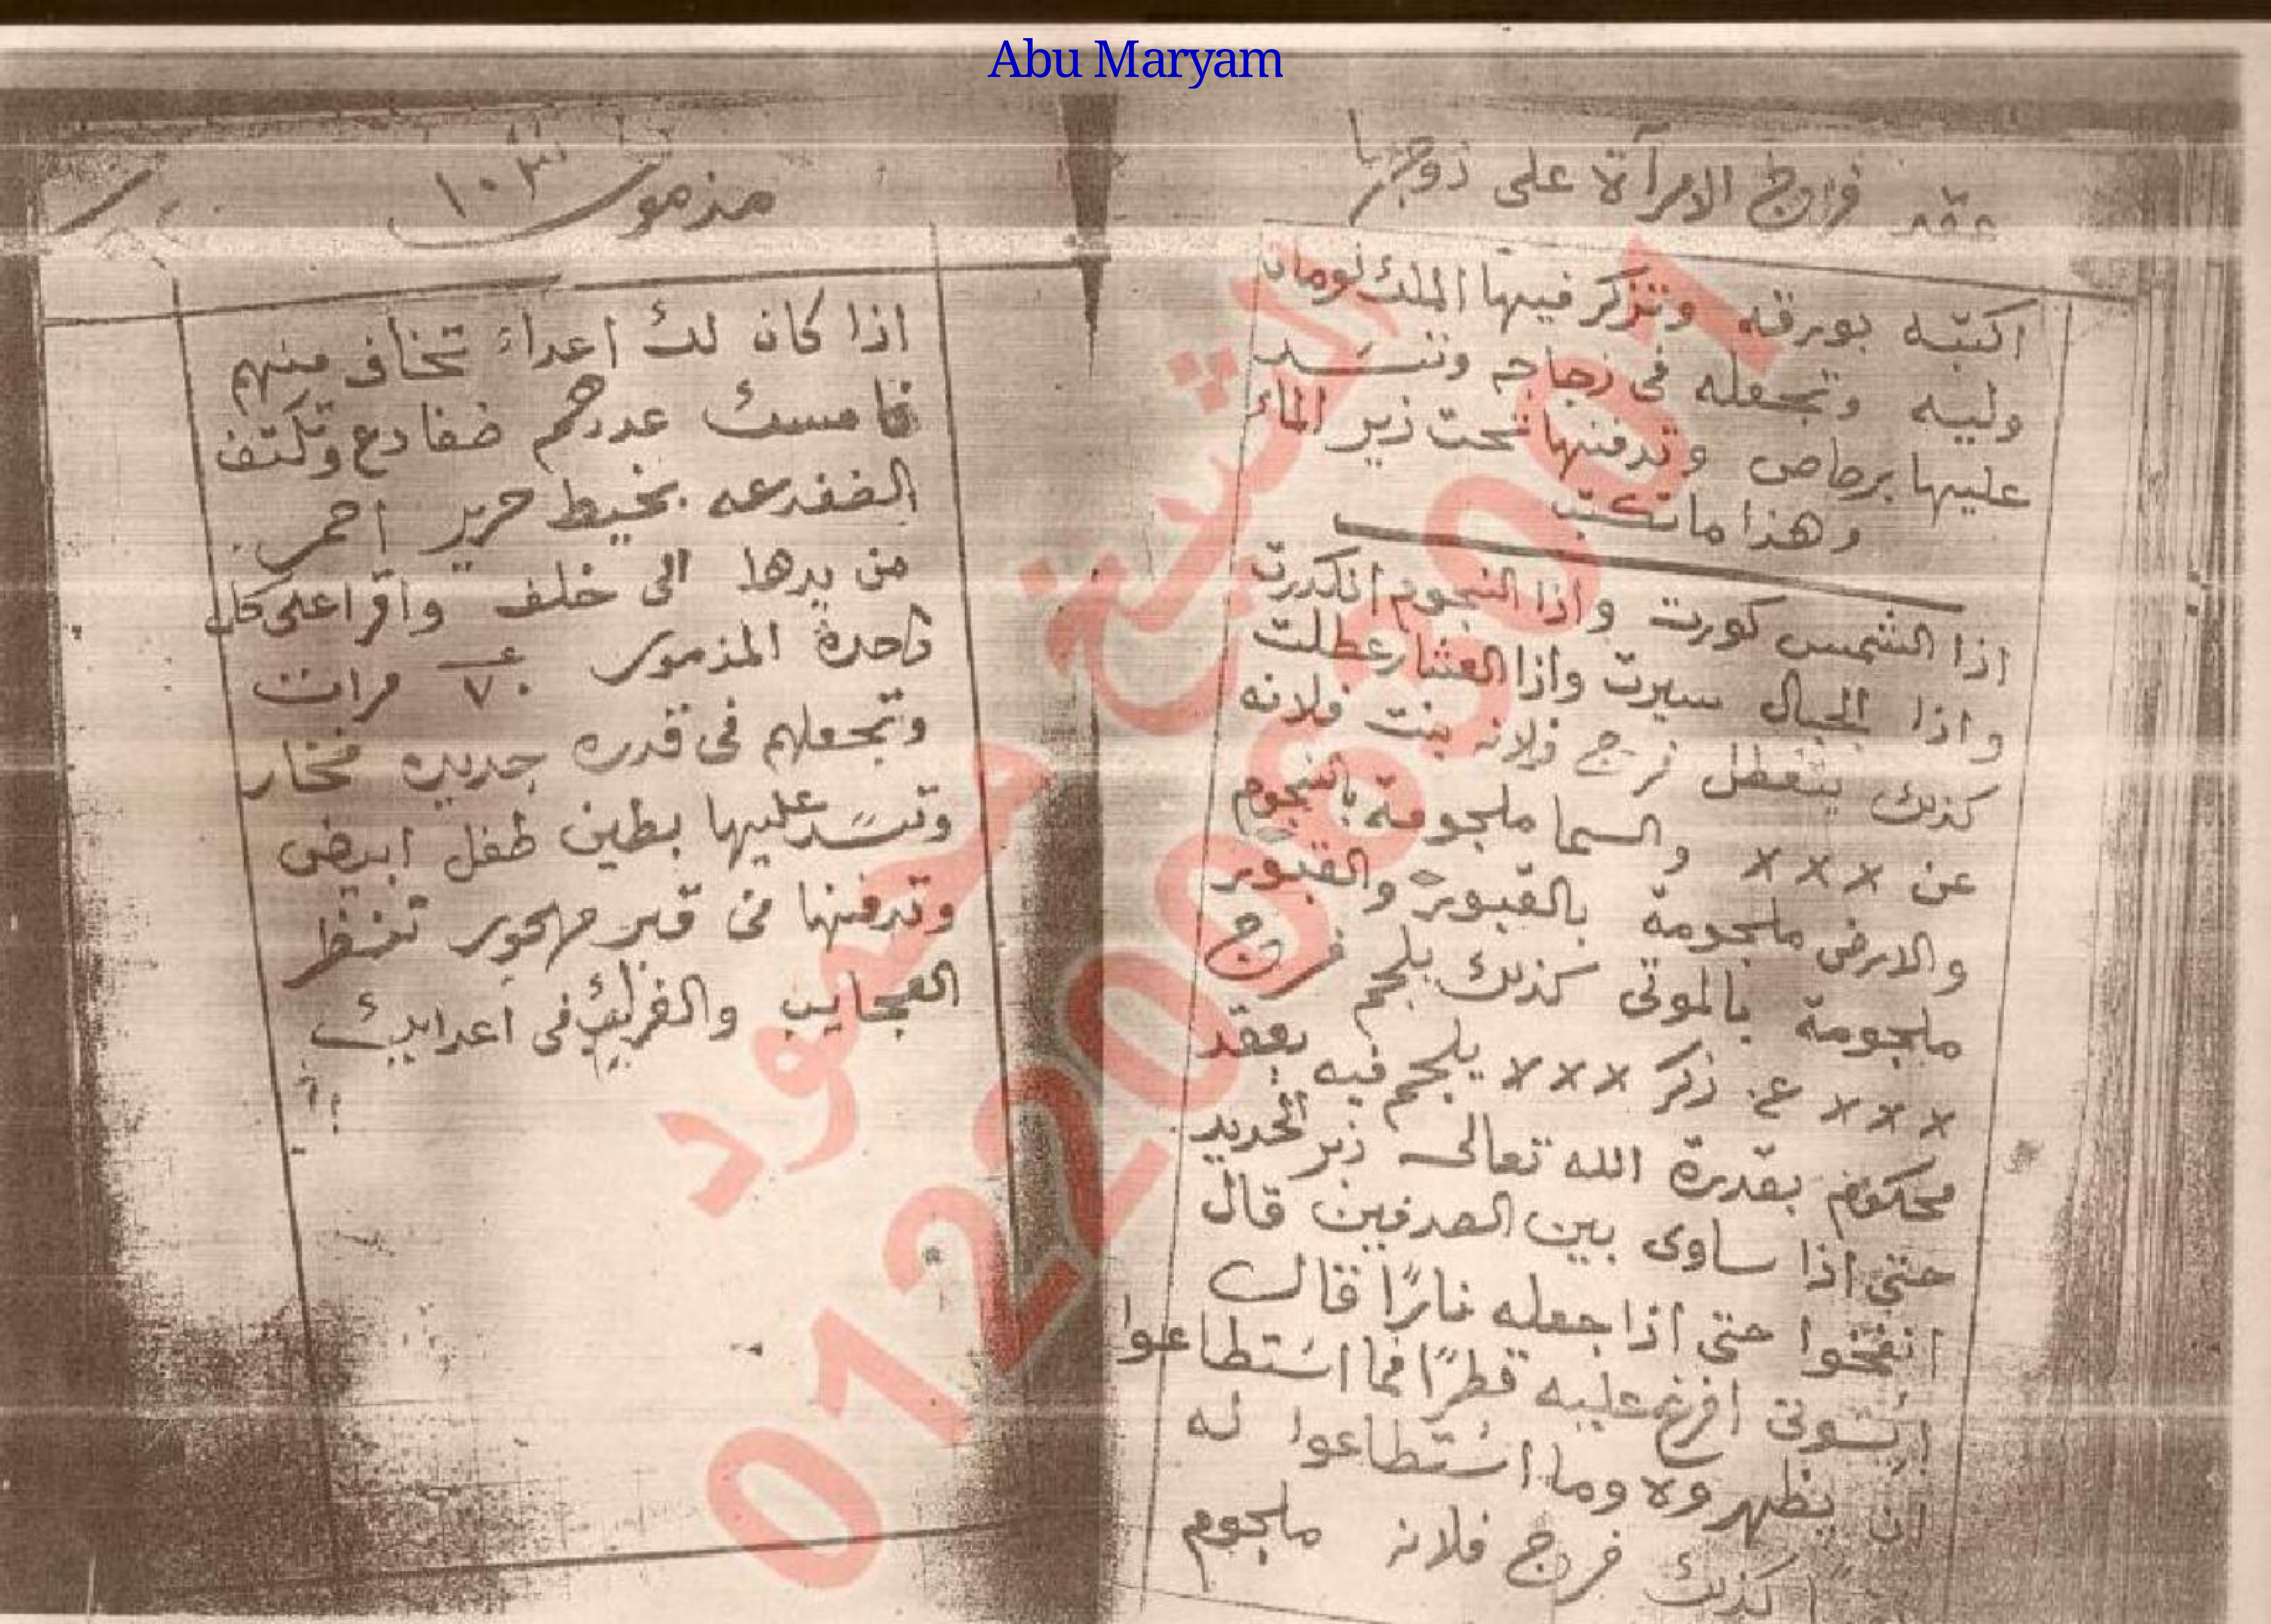 Abu Maryam
عقد فروج الامرآة على زوجها
اكتبه بورقه وتذكر فيها الملك نومان
وليه وتجعله فى زجاجه وتسد
عليها برصاص وتدفنها تحت زير الماء
وهذا ما تكتب
اذا الشمس كورت واذا النجوم انكدرت
واذا الجبال سيرت واذا العشار عطلت
كذلك يتعطل فرج فلانه بنت فلانه
عن ××× والسما ملجومة بالنجوم
والارض ملجومة بالقبور والقبور
ملجومة بالموتى كذلك يلجم فرج
××× عن ذكر ××× يلجم فيه بعقد
محكوم بقدرة الله تعالى زبر الحديد
حتى اذا ساوى بين الصدفين قال
انفخوا حتى اذا جعله نارًا قال
اتونى افرغ عليه قطرًا فما استطاعوا
ان يظهروه وما استطاعوا له
كذلك فرج فلانه ملجوم
مزمور ١٠٣
اذا كان لك اعداء تخاف منهم
فامسك عددهم ضفادع وتكتف
الضفدعه بخيط حرير احمر
من يدها الى خلف واقرا على كل
واحدة المزمور ٧ مرات
وتجعلهم فى قدره جديده فخار
وتسد عليها بطين طفل ابيض
وتدفنها فى قبر مهجور تنظر
العجايب والغرائب فى اعدايك
الشيخ محمود
01220083001